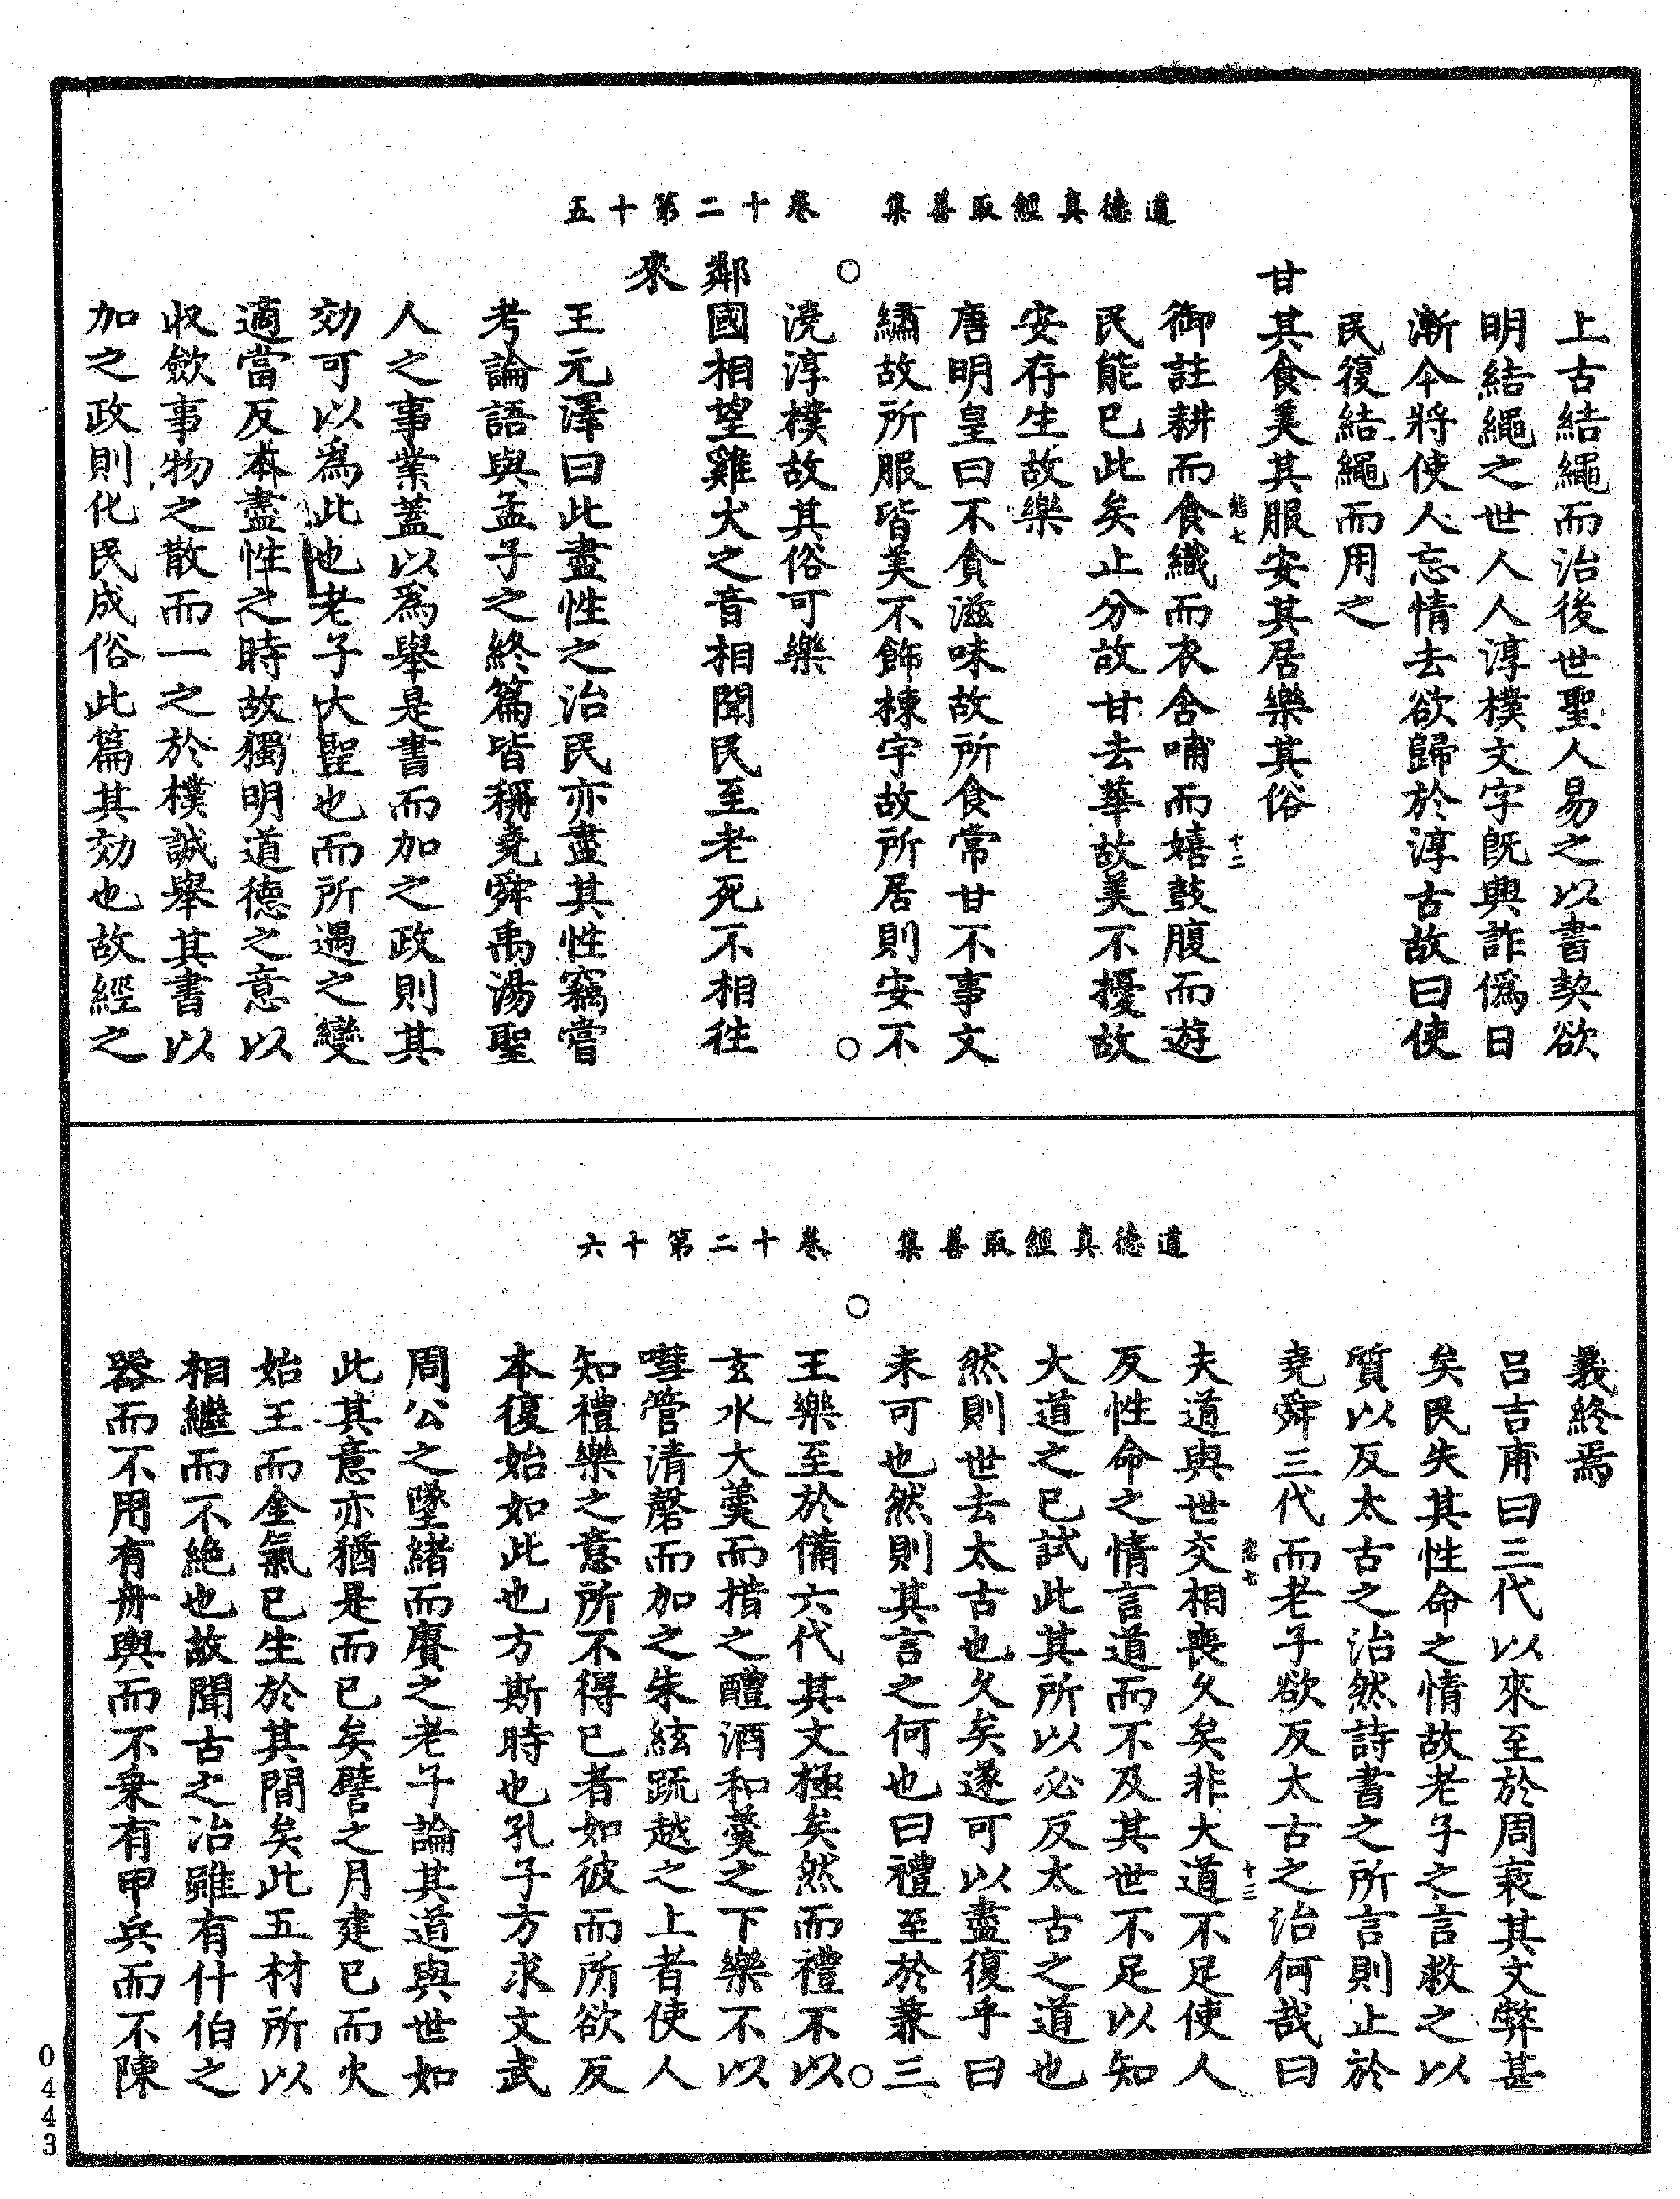 道德真經取善集　卷十二第十五
上古結繩而治後世聖人易之以書契欲
明結繩之世人人淳樸文字既興詐僞日
漸今將使人忘情去欲歸於淳古故曰使
民復結繩而用之
甘其食美其服安其居樂其俗
御註耕而食織而衣含哺而嬉鼓腹而遊
民能已此矣止分故甘去華故美不擾故
安存生故樂
唐明皇曰不貪滋味故所食常甘不事文
繡故所服皆美不飾棟宇故所居則安不
澆淳樸故其俗可樂
鄰國相望雞犬之音相聞民至老死不相往
來
王元澤曰此盡性之治民亦盡其性竊嘗
考論語與孟子之終篇皆稱堯舜禹湯聖
人之事業蓋以爲舉是書而加之政則其
効可以爲此也老子大聖也而所遇之變
適當反本盡性之時故獨明道德之意以
収斂事物之散而一之於樸誠舉其書以
加之政則化民成俗此篇其効也故經之
道德真經取善集　卷十二第十六
義終焉
呂吉甫曰三代以來至於周衰其文弊甚
矣民失其性命之情故老子之言救之以
質以反太古之治然詩書之所言則止於
堯舜三代而老子欲反太古之治何哉曰
夫道與世交相喪久矣非大道不足使人
反性命之情言道而不及其世不足以知
大道之已試此其所以必反太古之道也
然則世去太古也久矣遂可以盡復乎曰
未可也然則其言之何也曰禮至於兼三
王樂至於備六代其文極矣然而禮不以
玄水大羹而措之醴酒和羹之下樂不以
嘒管清磬而加之朱絃疏越之上者使人
知禮樂之意所不得已者如彼而所欲反
本復始如此也方斯時也孔子方求文武
周公之墜緒而賡之老子論其道與世如
此其意亦猶是而已矣譬之月建巳而火
始王而金氣已生於其間矣此五材所以
相繼而不絶也故聞古之治雖有什伯之
器而不用有舟輿而不乗有甲兵而不陳
0443